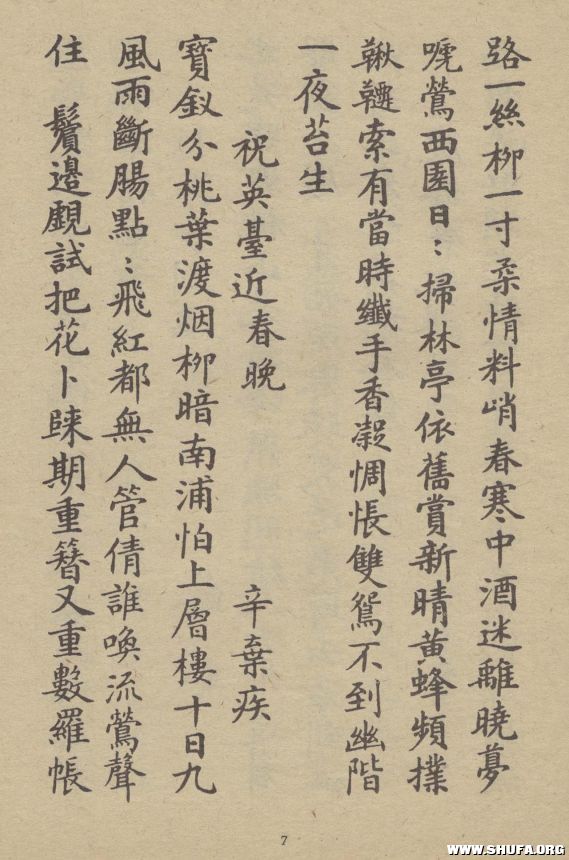 路一絲柳一寸柔情料峭春寒中酒迷離曉夢
嗁鶯西園日〻掃林亭依舊賞新晴黃蜂頻撲
鞦韆索有當時纖手香凝惆悵雙鴛不到幽階
一夜苔生
祝英臺近春晚
辛棄疾
寶釵分桃葉渡烟柳暗南浦怕上層樓十日九
風雨斷腸點〻飛紅都無人管倩誰喚流鶯聲
住 鬢邊覷試把花卜歸期重簪又重數羅帳
7
WWW.SHUFA.ORG